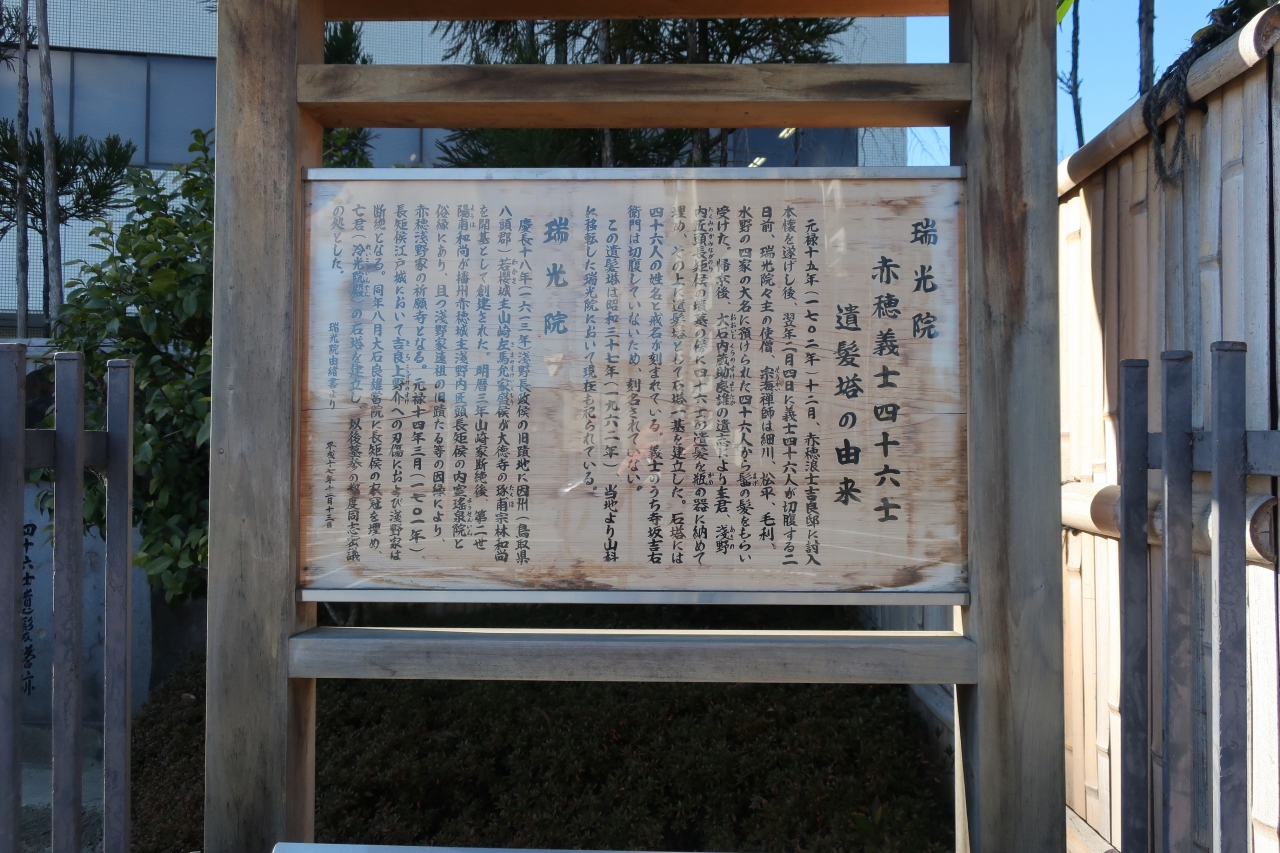 瑞光院
赤穂義士四十六士
遺髪塔の由来
元禄十五年(一七〇二年)十二月、赤穂浪士吉良邸に討入
本懐を遂げし後、翌年二月四日に義士四十六人が切腹する二
日前 瑞光院々主の使僧、宗海禅師は細川、松平 毛利、
水野の四家の大名に預けられた四十六人から髻の髪をもらい
受けた。帰京後、大石内蔵助良雄の遺言により主君、浅野
内匠頭長矩侯の墳墓の傍に四十六士の遺髪を瓶の器に納めて
埋め、その上に遺髪塔として石塔一基を建立した。石塔には
四十六人の姓名と戒名が刻まれている。義士のうち寺坂吉右
衛門は切腹していないため、刻名されていない。
この遺髪塔は昭和三十七年(一九六二年) 当地より山科
に移転した瑞光院において現在も祀られている。
瑞光院
慶長十八年(一六一三年)浅野長政侯の旧蹟地に因州(鳥取県
八頭郡)若桜城主山崎左馬允家盛侯が大徳寺の琢甫宗林和尚
を開基として創建された。明暦三年山崎家断絶後、第二世
陽甫和尚が播州赤穂城主浅野内匠頭長矩侯の内室瑤泉院と
俗縁にあり、且つ浅野家遠祖の旧蹟たる等の因縁により、
赤穂浅野家の祈願寺となる。元禄十四年三月(一七〇一年)、
長矩侯江戸城において吉良上野介への刃傷におよび浅野家は
断絶となる。同年八月大石良雄当院に長矩侯の衣冠を埋め、
亡君 冷光院殿 の石塔を建立し、以後墓参の都度同志密議
の処とした。
瑞光院由緒書より
平成十七年十二月十三日
四十六士遺髪塔跡